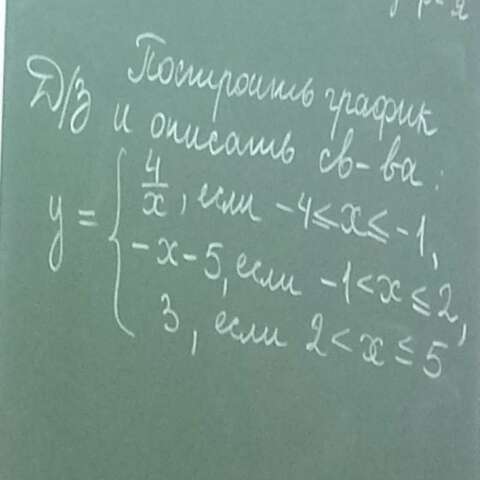 Д/З Построить график
и описать св-ва:
y = { 4/x, если -4≤x≤-1,
-x-5, если -1<x≤2,
3, если 2<x≤5